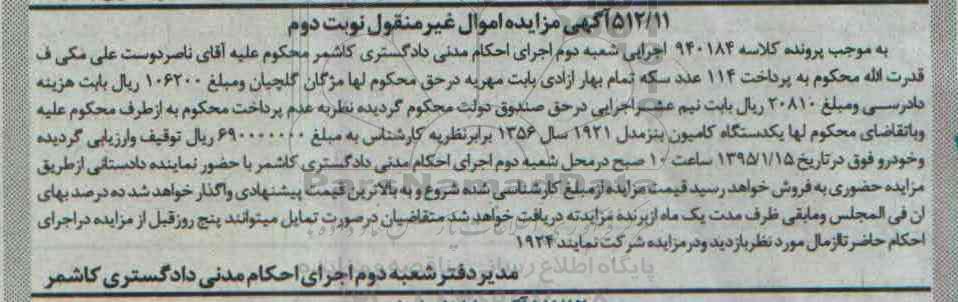 ۵۱۲/۱۱ آگهی مزایده اموال غیر منقول نوبت دوم
به موجب پرونده کلاسه ۹۴۰۱۸۴ اجرایی شعبه دوم اجرای احکام مدنی دادگستری کاشمر محکوم علیه آقای ناصردوست علی مکی ف
قدرت الله محکوم به پرداخت ۱۱۴ عدد سکه تمام بهار ازادی بابت مهریه درحق محکوم لها مژگان گلچیان ومبلغ ۱۰۶۲۰۰ ریال بابت هزینه
دادرسی ومبلغ ۲۰۸۱۰ ریال بابت نیم عشراجرایی درحق صندوق دولت محکوم گردیده نظربه عدم پرداخت محکوم به ازطرف محکوم علیه
وباتقاضای محکوم لها یکدستگاه کامیون بنزمدل ۱۹۲۱ سال ۱۳۵۶ برابرنظریه کارشناس به مبلغ ۶۹۰۰۰۰۰۰۰ ریال توقیف وارزیابی گردیده
وخودرو فوق درتاریخ ۱۳۹۵/۱/۱۵ ساعت ۱۰ صبح درمحل شعبه دوم اجرای احکام مدنی دادگستری کاشمر با حضور نماینده دادستانی ازطریق
مزایده حضوری به فروش خواهد رسید قیمت مزایده ازمبلغ کارشناسی شده شروع و به بالاترین قیمت پیشنهادی واگذار خواهد شد ده درصد بهای
ان فی المجلس ومابقی ظرف مدت یک ماه ازبرنده مزایده دریافت خواهد شد متقاضیان درصورت تمایل میتوانند پنج روزقبل از مزایده دراجرای
احکام حاضر تاازمال مورد نظربازدید ودرمزایده شرکت نمایند ۱۹۲۴
مدیر دفتر شعبه دوم اجرای احکام مدنی دادگستری کاشمر
پایگاه اطلاع رسانی مناقصه و مزایده